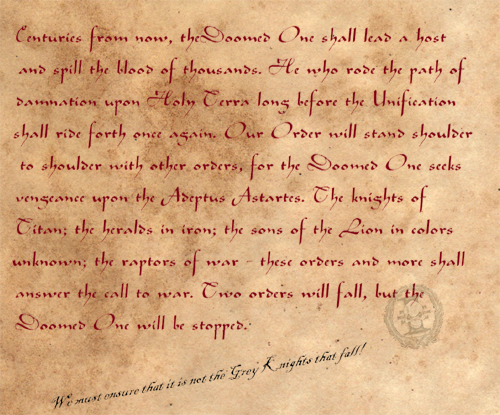 Centuries from now, the Doomed One shall lead a host
and spill the blood of thousands. He who rode the path of
damnation upon Holy Terra long before the Unification
shall ride forth once again. Our Order will stand shoulder
to shoulder with other orders, for the Doomed One seeks
vengeance upon the Adeptus Astartes. The knights of
Titan; the heralds in iron; the sons of the Lion in colors
unknown; the raptors of war - these orders and more shall
answer the call to war. Two orders will fall, but the
Doomed One will be stopped.
We must ensure that it is not the Grey Knights that fall!